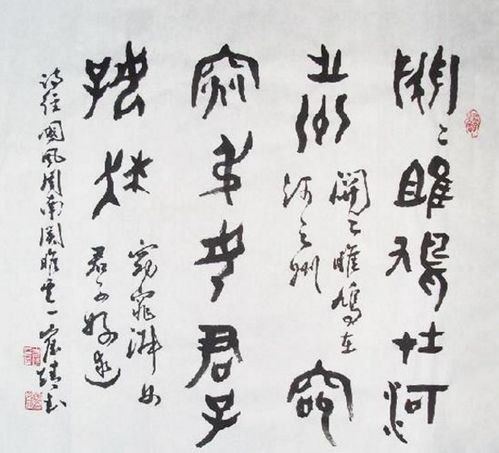 關〻雎鳩在河
之州
關〻雎鳩在
河之州
窈
窕淑女君子
好逑
窈窕淑女
君子好逑
詩經國風周南関雎